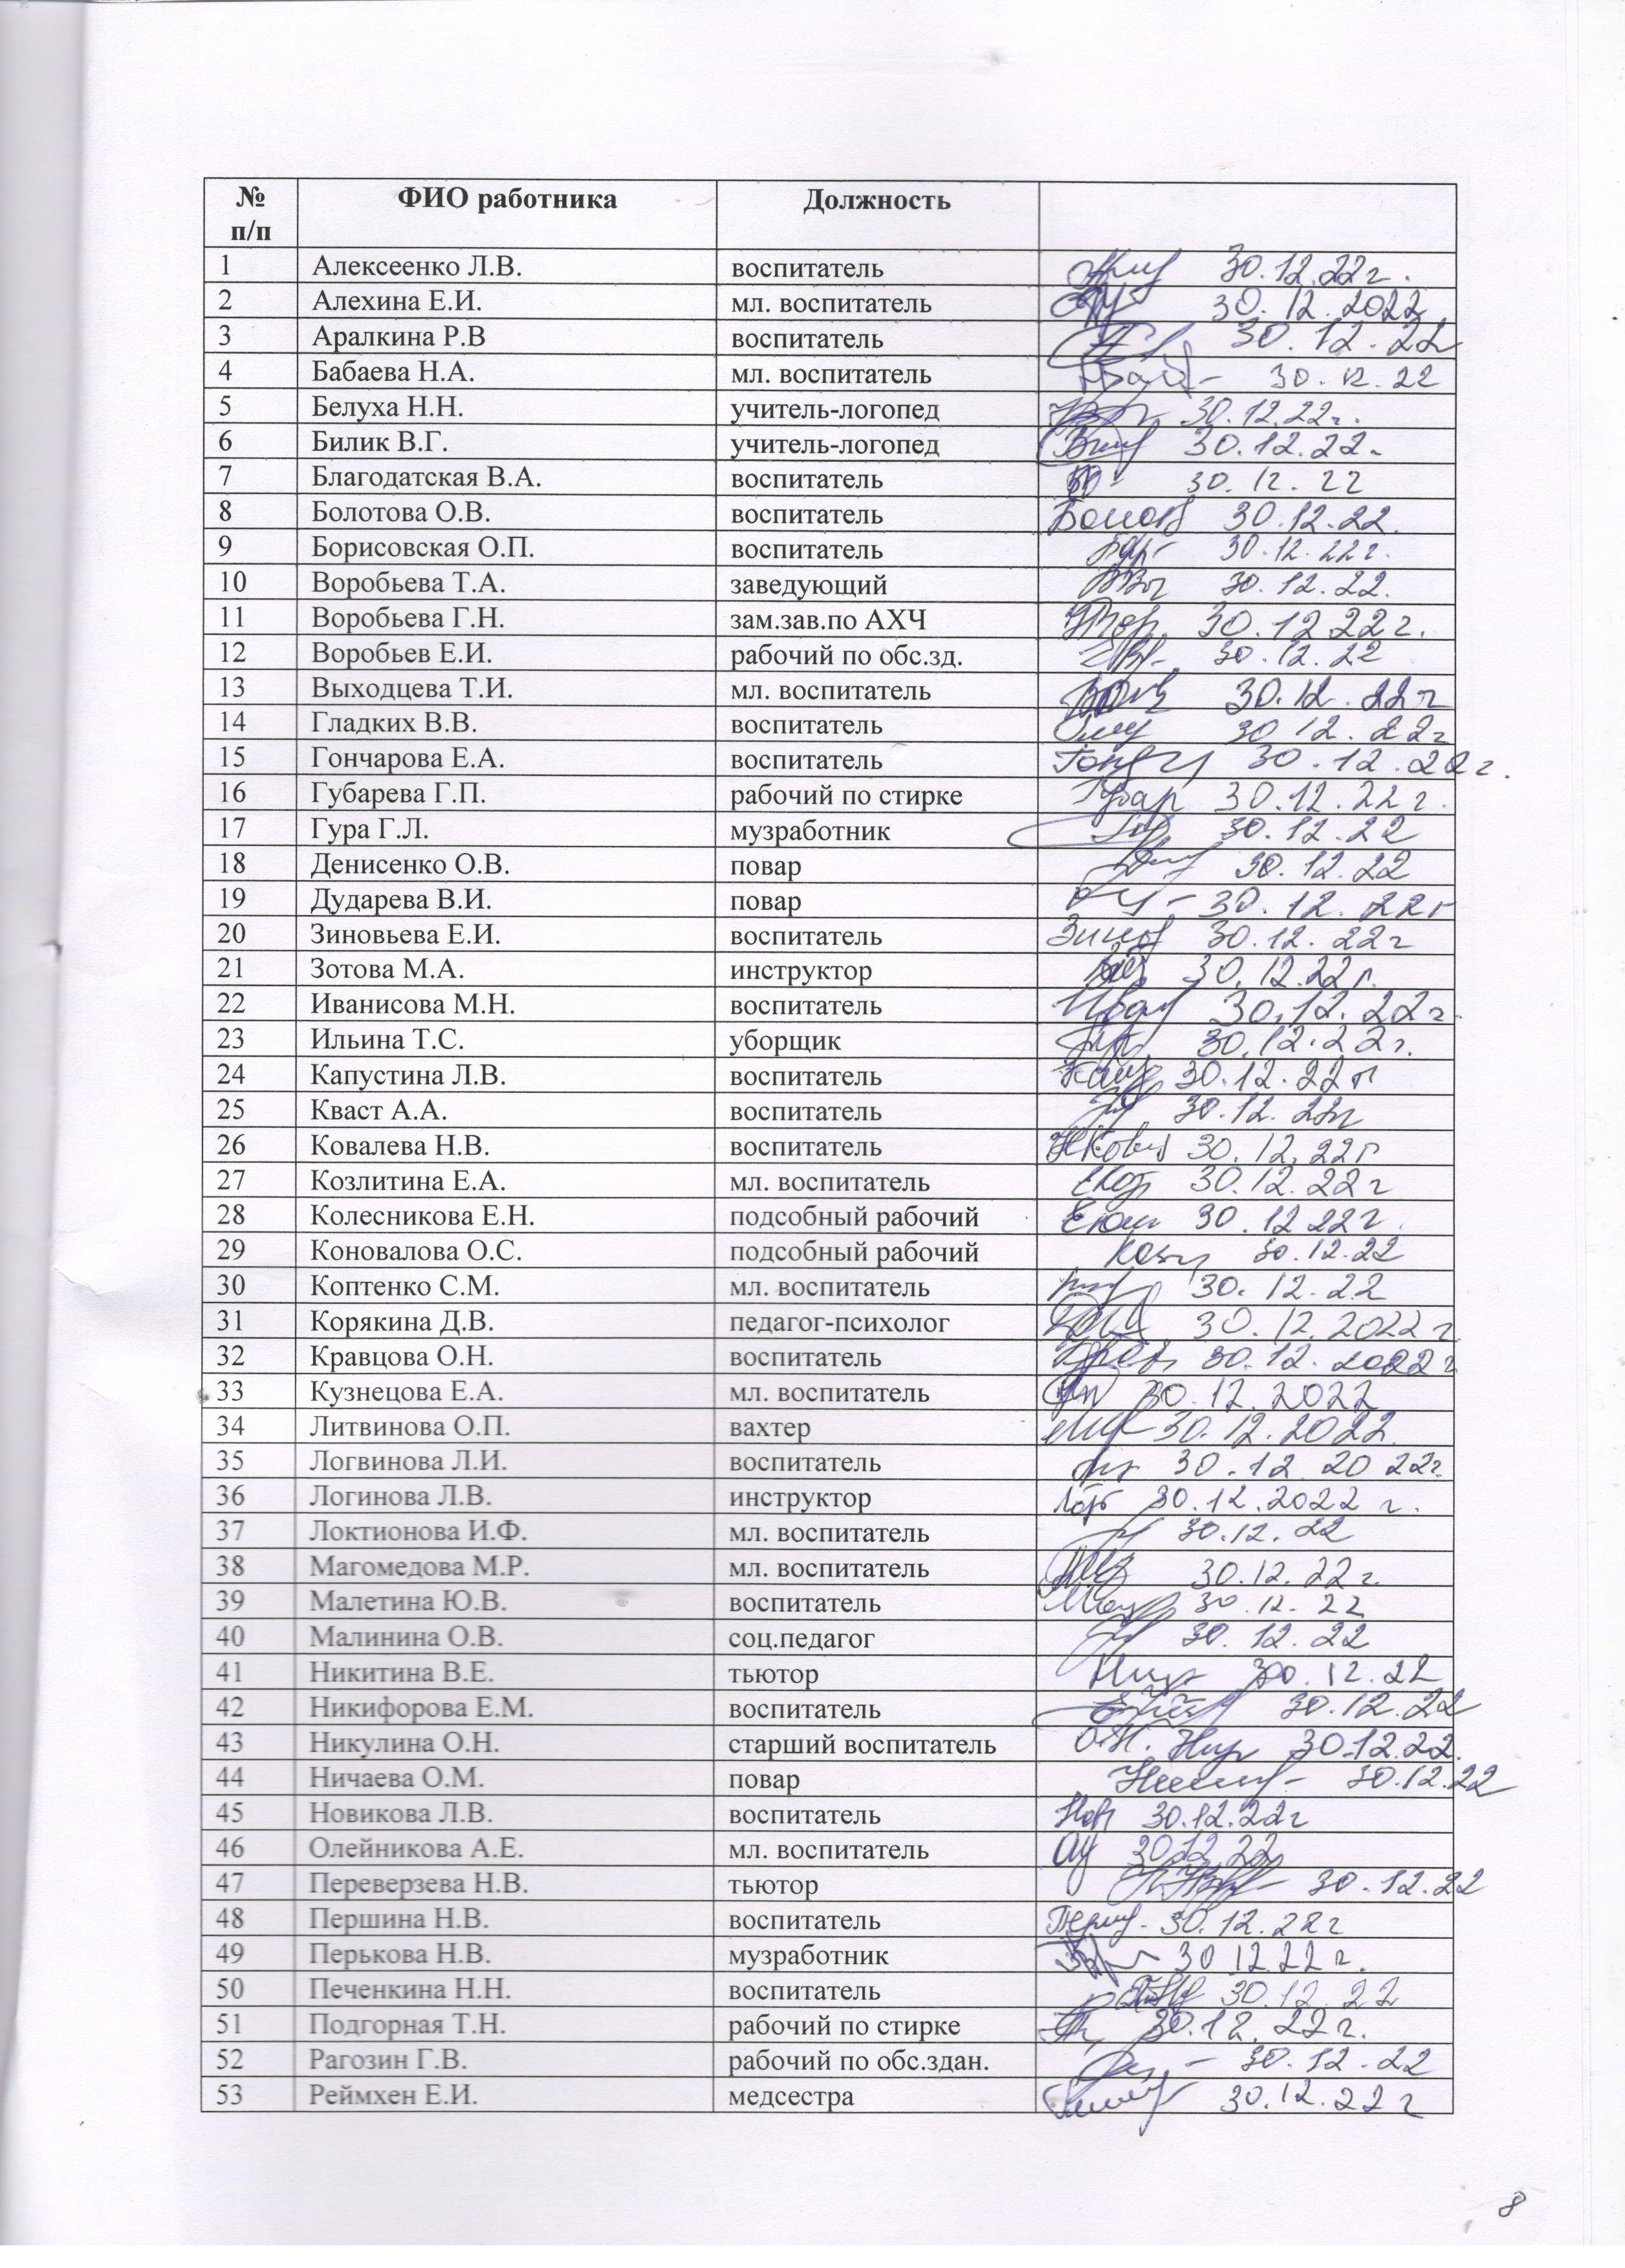 № п/п ФИО работника Должность
1 Алексеенко Л.В. воспитатель 30.12.22г.
2 Алехина Е.И. мл. воспитатель 30.12.2022
3 Аралкина Р.В воспитатель 30.12.22
4 Бабаева Н.А. мл. воспитатель 30.12.22
5 Белуха Н.Н. учитель-логопед 30.12.22г.
6 Билик В.Г. учитель-логопед 30.12.22.
7 Благодатская В.А. воспитатель 30.12.22
8 Болотова О.В. воспитатель 30.12.22.
9 Борисовская О.П. воспитатель 30.12.22г.
10 Воробьева Т.А. заведующий 30.12.22.
11 Воробьева Г.Н. зам.зав.по АХЧ 30.12 22г.
12 Воробьев Е.И. рабочий по обс.зд. 30.12.22
13 Выходцева Т.И. мл. воспитатель 30.12.22г
14 Гладких В.В. воспитатель 30 12.22г
15 Гончарова Е.А. воспитатель 30.12.22г.
16 Губарева Г.П. рабочий по стирке Губар 30.12.22г.
17 Гура Г.Л. музработник 30.12.22
18 Денисенко О.В. повар 30.12.22
19 Дударева В.И. повар 30.12.22г
20 Зиновьева Е.И. воспитатель 30.12.22г
21 Зотова М.А. инструктор 30.12.22г.
22 Иванисова М.Н. воспитатель 30.12.22г.
23 Ильина Т.С. уборщик 30.12.22г.
24 Капустина Л.В. воспитатель 30.12.22г
25 Кваст А.А. воспитатель 30.12.22г
26 Ковалева Н.В. воспитатель 30.12.22г
27 Козлитина Е.А. мл. воспитатель 30.12.22г
28 Колесникова Е.Н. подсобный рабочий 30.12 22г.
29 Коновалова О.С. подсобный рабочий 30.12.22
30 Коптенко С.М. мл. воспитатель 30.12.22
31 Корякина Д.В. педагог-психолог 30.12.2022г
32 Кравцова О.Н. воспитатель 30.12.2022г
33 Кузнецова Е.А. мл. воспитатель 30.12.2022
34 Литвинова О.П. вахтер 30.12.2022.
35 Логвинова Л.И. воспитатель 30.12 2022г.
36 Логинова Л.В. инструктор 30.12.2022 г.
37 Локтионова И.Ф. мл. воспитатель 30.12.22
38 Магомедова М.Р. мл. воспитатель 30.12.22г.
39 Малетина Ю.В. воспитатель 30.12.22
40 Малинина О.В. соц.педагог 30.12.22
41 Никитина В.Е. тьютор 30.12.22
42 Никифорова Е.М. воспитатель 30.12.22
43 Никулина О.Н. старший воспитатель 30.12.22.
44 Ничаева О.М. повар 30.12.22
45 Новикова Л.В. воспитатель Нов 30.12.22г
46 Олейникова А.Е. мл. воспитатель 30.12.22
47 Переверзева Н.В. тьютор 30.12.22
48 Першина Н.В. воспитатель 30.12.22г
49 Перькова Н.В. музработник 30 12.22г.
50 Печенкина Н.Н. воспитатель 30.12.22
51 Подгорная Т.Н. рабочий по стирке 30.12.22г.
52 Рагозин Г.В. рабочий по обс.здан. 30.12.22
53 Реймхен Е.И. медсестра 30.12.22г
8